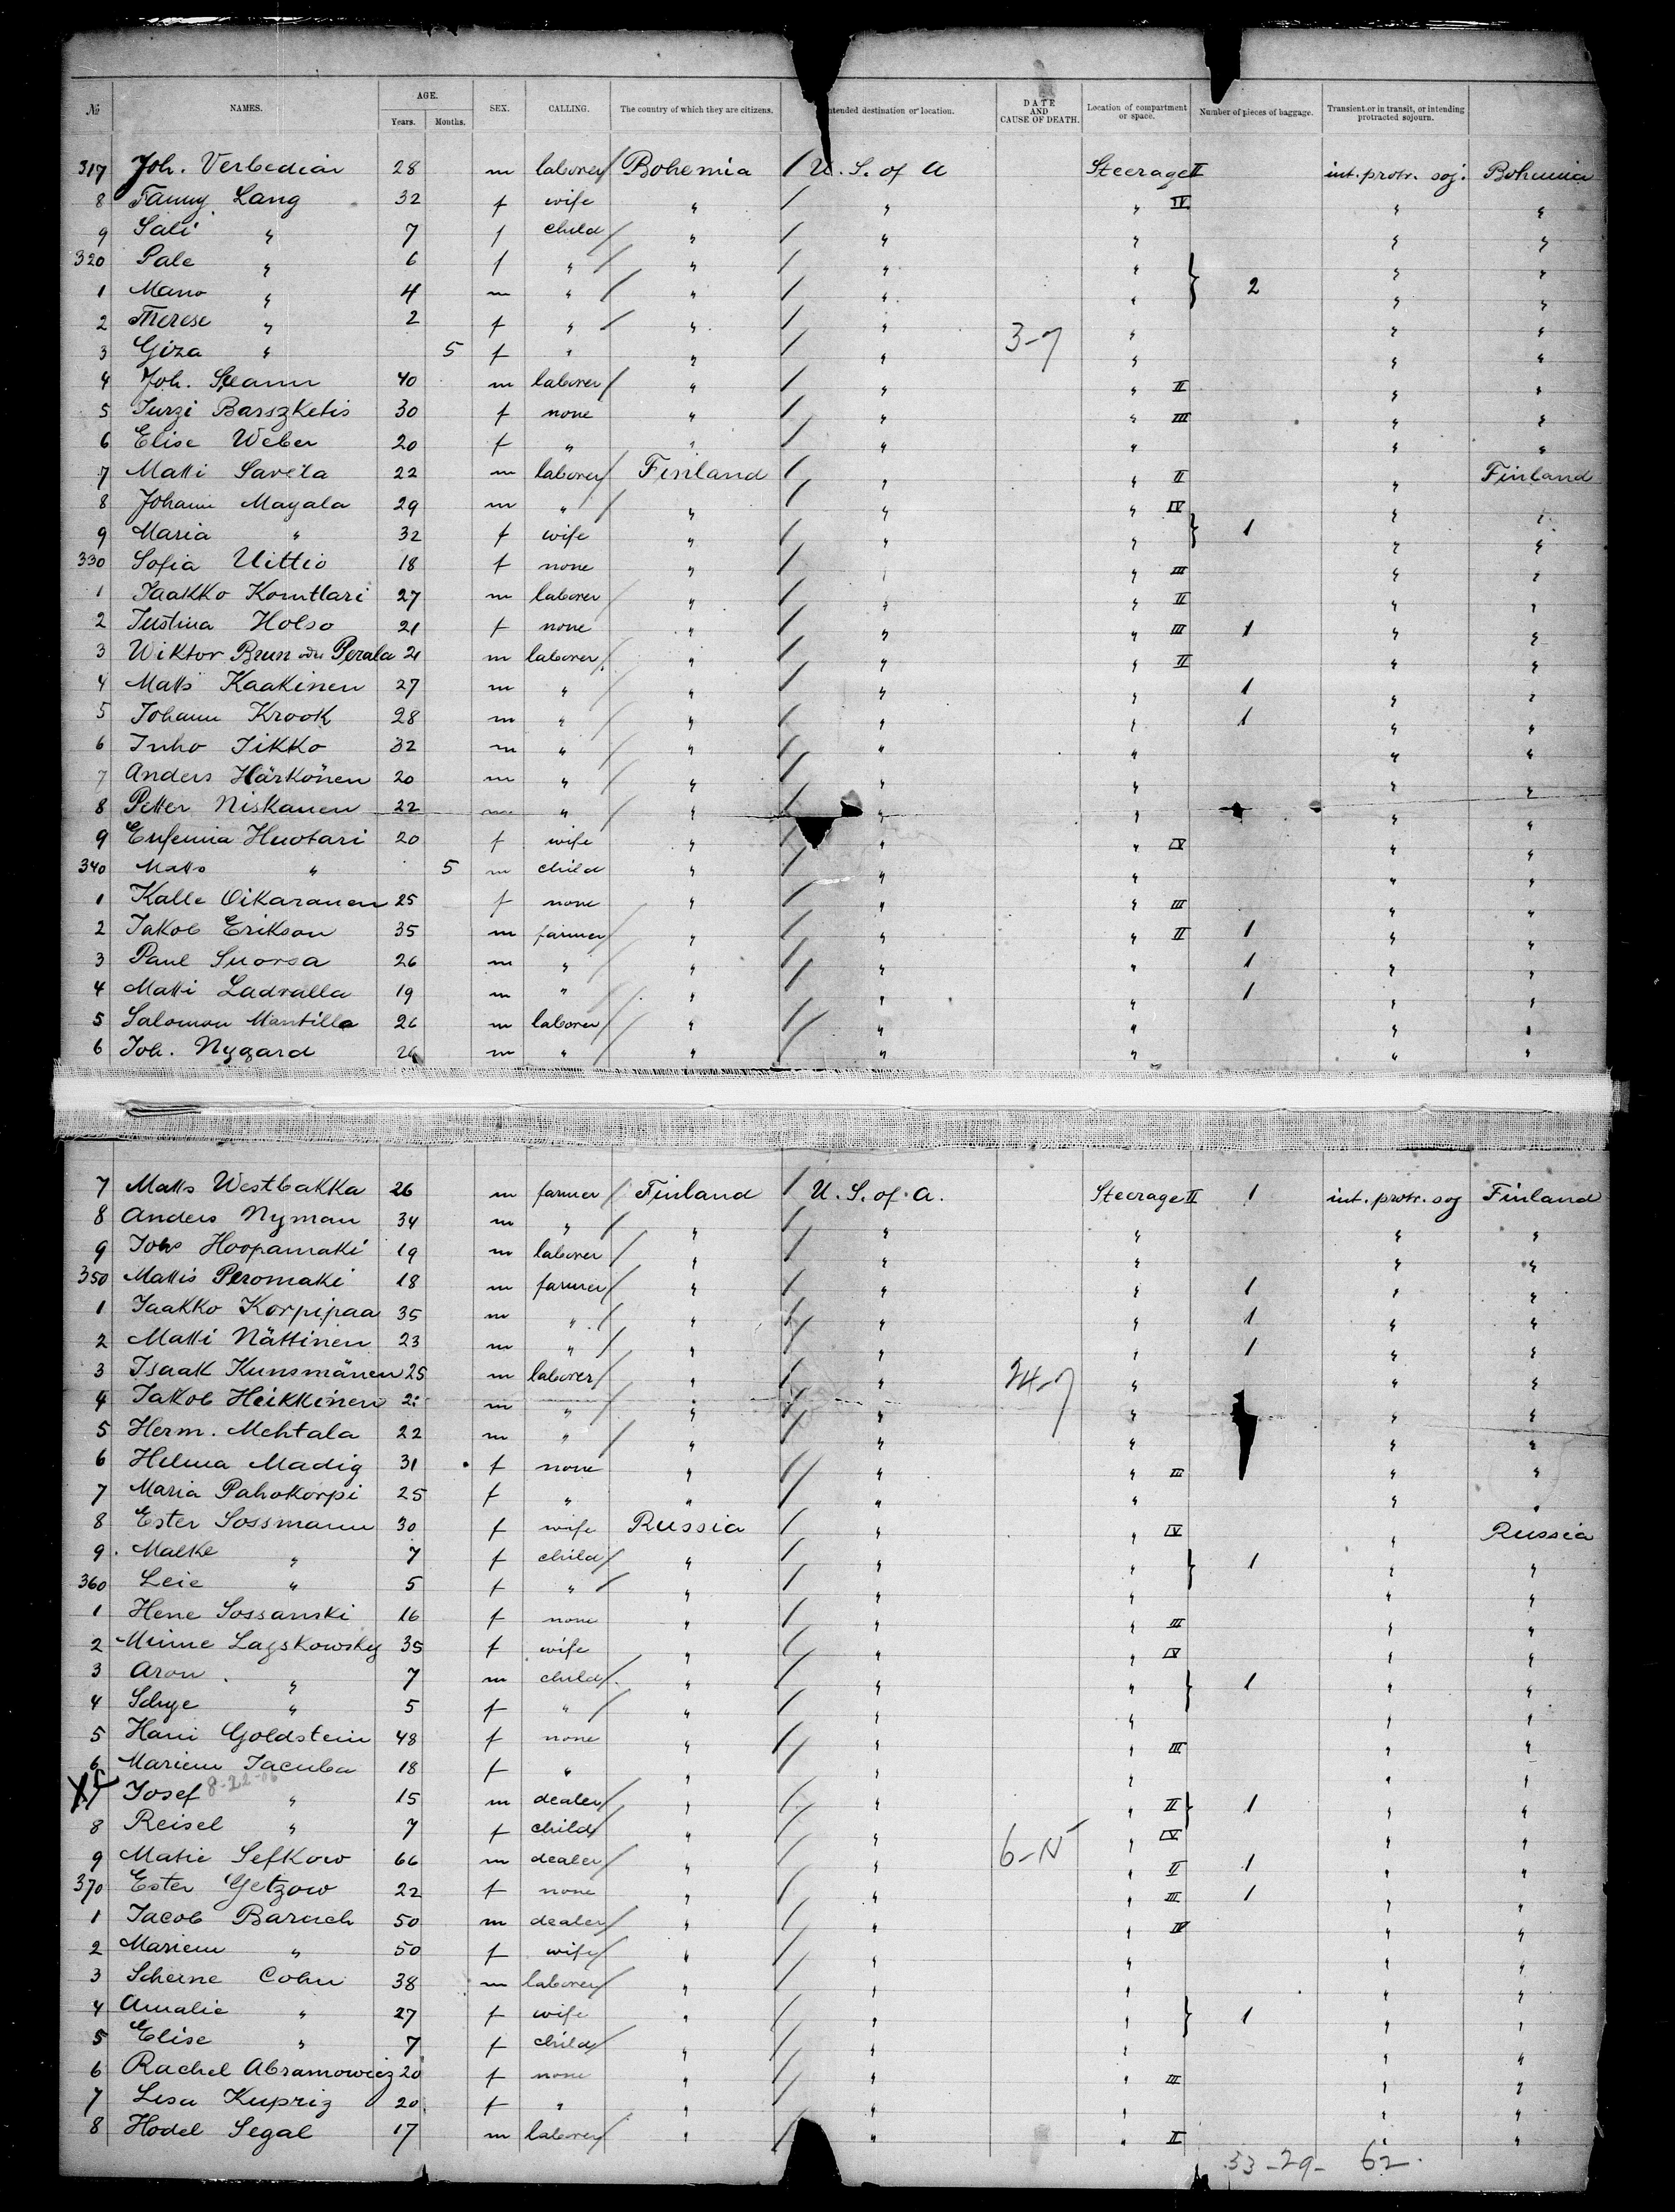 № NAMES. AGE. Years. Months. SEX. CALLING. The country of which they are citizens. Intended destination or location. DATE AND CAUSE OF DEATH. Location of compartment or space. Number of pieces of baggage. Transient or in transit, or intending protracted sojourn.
317 Joh. Verbediar 28 m laborer Bohemia / U. S. of A Steerage II int. protr. soj. Bohemia
8 Fanny Lang 32 f wife " / " " IV " "
9 Sali " 7 f child " / " " " "
320 Pale " 6 f " " / " " " "
1 Mano " 4 m " " / " " 2 " "
2 Therese " 2 f " " / " " " "
3 Giza " 5 f " " / " 3-7 " " "
4 Joh. 40 m laborer " / " " II " "
5 Jurzi Barszketis 30 f none " / " " III " "
6 Elise Weber 20 f " " / " " " "
7 Matti Savela 22 m laborer Finland / " " II " Finland
8 Johann Magala 29 m " " / " " IV " "
9 Maria " 32 f wife " / " " 1 " "
330 Sofia Uittio 18 f none " / " " III " "
1 Jaakko Komttari 27 m laborer " / " " II " "
2 Justina Holso 21 f none " / " " III 1 " "
3 Wiktor Brun Perala 21 m laborer " / " " II " "
4 Matts Kaakinen 27 m " " / " " 1 " "
5 Johann Krook 28 m " " / " " 1 " "
6 Juho Jikko 32 m " " / " " " "
7 Anders Härkönen 20 m " " / " " " "
8 Petter Niskanen 22 m " " / " " " "
9 Eufemia Huotari 20 f wife " / " " IV " "
340 Matts " 5 m child " / " " " "
1 Kalle Oikaranen 25 f none " / " " III " "
2 Jakob Erikson 35 m farmer " / " " II 1 " "
3 Paul Suorsa 26 m " " / " " 1 " "
4 Matti Ladvalla 19 m " " / " " 1 " "
5 Salomon Mantilla 26 m laborer " / " " " "
6 Joh. Nygard 26 m " " / " " " "
7 Matts Westbakka 26 m farmer Finland / U. S. of A. Steerage II 1 int. protr. soj Finland
8 Anders Nyman 34 m " " / " " " "
9 Johs Hoopamaki 19 m laborer " / " " " "
350 Mattis Peromaki 18 m farmer " / " " 1 " "
1 Jaakko Korpipaa 35 m " " / " " 1 " "
2 Matti Nättinen 23 m " " / " " 1 " "
3 Isaak Kunsmänen 25 m laborer " / " 24-7 " " "
4 Jakob Heikkinen m " " / " " " "
5 Herm. Mehtala 22 m " " / " " " "
6 Helma Madig 31 f none " / " " III " "
7 Maria Pahokorpi 25 f " " / " " " "
8 Ester Sossmann 30 f wife Russia / " " IV " Russia
9 Malke " 7 f child " / " " 1 " "
360 Leie " 5 f " " / " " " "
1 Hene Sossanski 16 f none " / " " III " "
2 Mime Lagskowsky 35 f wife " / " " IV " "
3 Aron " 7 m child " / " " 1 " "
4 Schye " 5 f " " / " " " "
5 Hani Goldstein 48 f none " / " " III " "
6 Mariem Jacuba 18 f " " / " " " "
7 Josef 8-22-06 " 15 m dealer " / " " II 1 " "
8 Reisel " 7 f child " / " 6-N " IV " "
9 Matie Sefkow 66 m dealer " / " " II 1 " "
370 Ester Getzow 22 f none " / " " III 1 " "
1 Jacob Baruch 50 m dealer " / " " IV " "
2 Mariem " 50 f wife " / " " " "
3 Scherne Cohn 38 m laborer " / " " " "
4 Amalie " 27 f wife " / " " 1 " "
5 Elise " 7 f child " / " " " "
6 Rachel Abramowicz 20 f none " / " " III " "
7 Lesa Kupriz 20 f " " / " " " "
8 Hodel Segal 17 m laborer " / " " II " "
53-29- 62